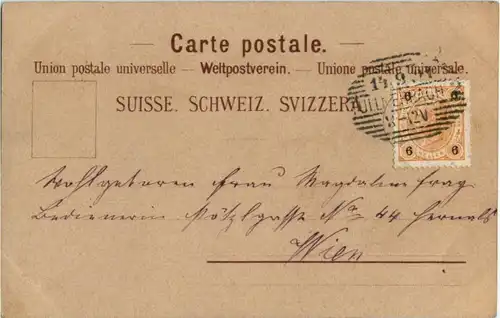 — Carte postale. —
Union postale universelle — Weltpostverein. — Unione postale universale.
SUISSE. SCHWEIZ. SVIZZERA
6 6
6 6
Wohlgeboren Frau Magdalena
Bedienerin No 44 Hernals
Wien